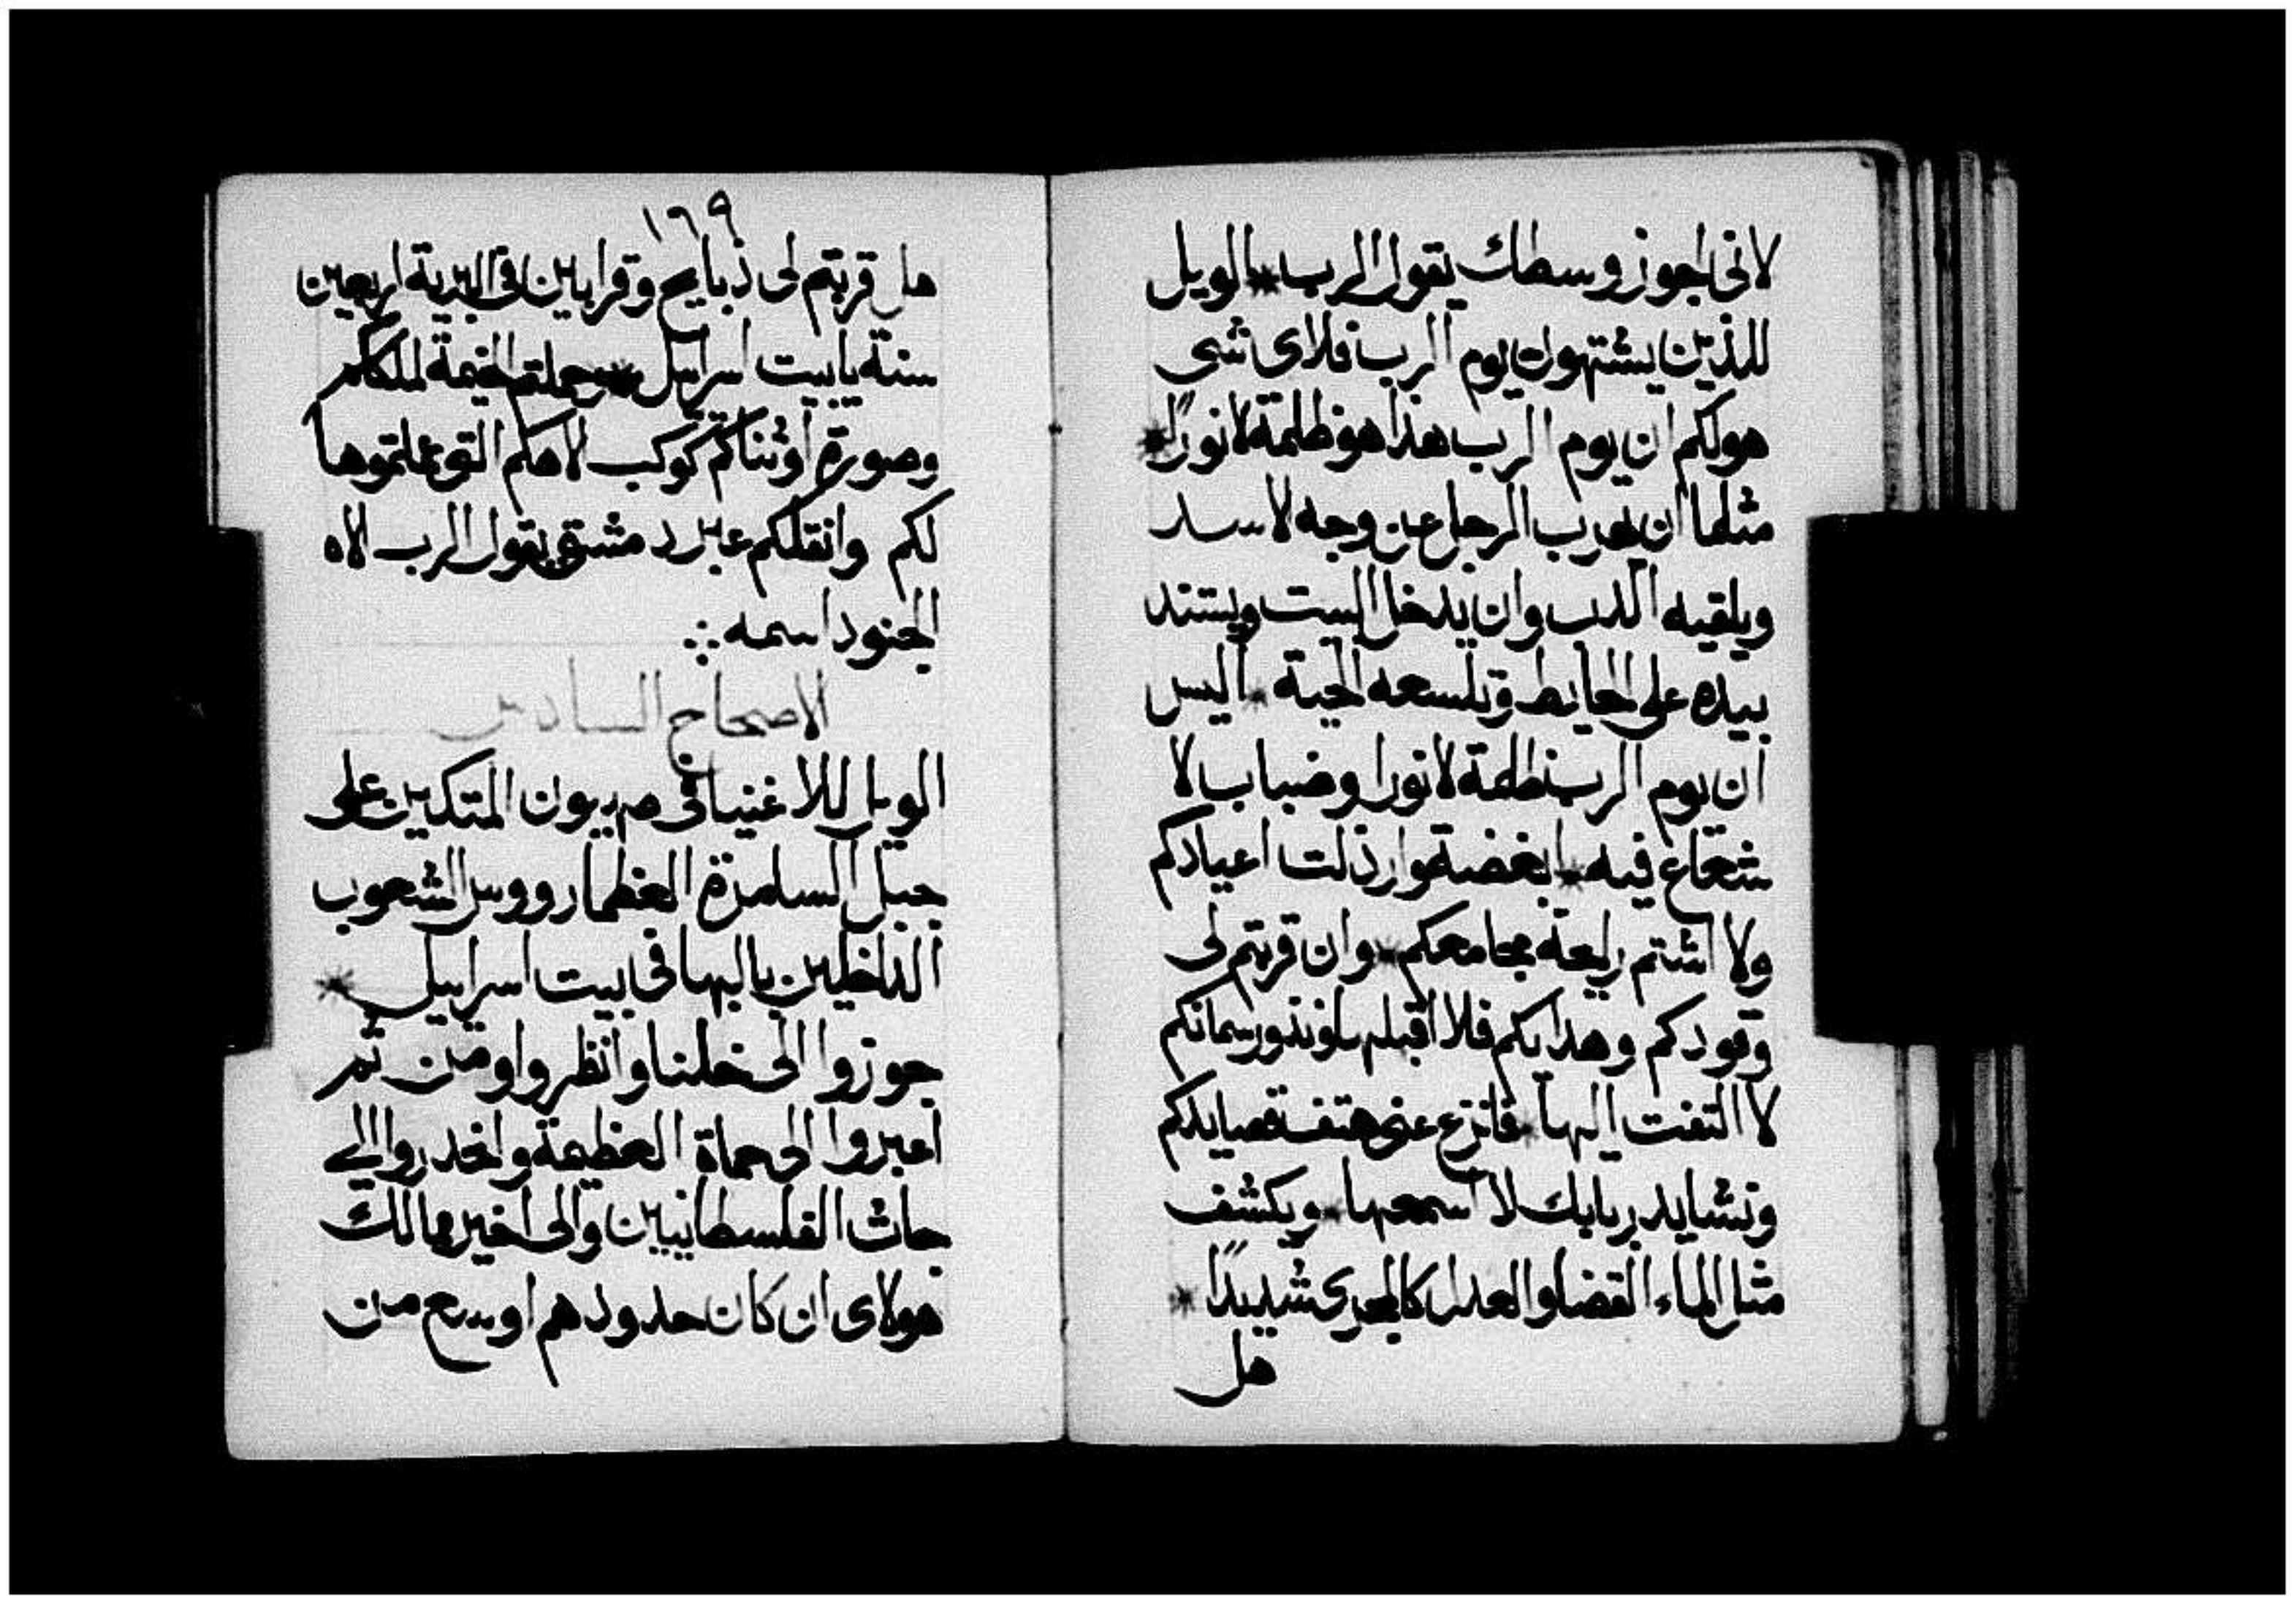 لانى اجوز وسطك يقول الرب * الويل
للذين يشتهون يوم الرب فلاى شى
هولكم ان يوم الرب هذا هو ظلمة لا نورًا *
مثلما ان يهرب الرجل عن وجه لاسد
ويلقيه الدب وان يدخل البيت ويستند
بيده على الحايط وتلسعه الحية * اليس
ان يوم الرب ظلمة لا نورا وضباب لا
شعاع فيه * ابغضت وارذلت اعيادكم
ولا اشتم رايحة مجامعكم * وان قربتم لى
وقودكم وهداياكم فلا اقبلهم ونذور سمانكم
لا التفت اليها * فانزع عنى هتف قصايدكم
ونشايد ربابك لا اسمعها * ويكشف
مثل الماء القضا والعدل كالمجرى شديدًا *
هل
١٦٩
هل قربتم لى ذبايح وقرابين فى البرية اربعين
سنة يا بيت اسراييل * وحملتم الخيمة لملككم
وصورة اوثناكم كوكب لاهكم التى عملتموها
لكم وانقلكم عبر دمشق يقول الرب الاه
الجنود اسمه ∴
الاصحاح السادس
الويل للاغنيا فى صهيون المتكلين على
جبل السامرة العظما رووس الشعوب
الداخلين بالبها فى بيت اسراييل *
جوزوا الى خلنا وانظروا ومن ثم
اعبروا الى حماة العظيمة وانحدروا الى
جاث الفلسطانيين والى اخير ممالك
هولاى ان كان حدودهم اوسع من